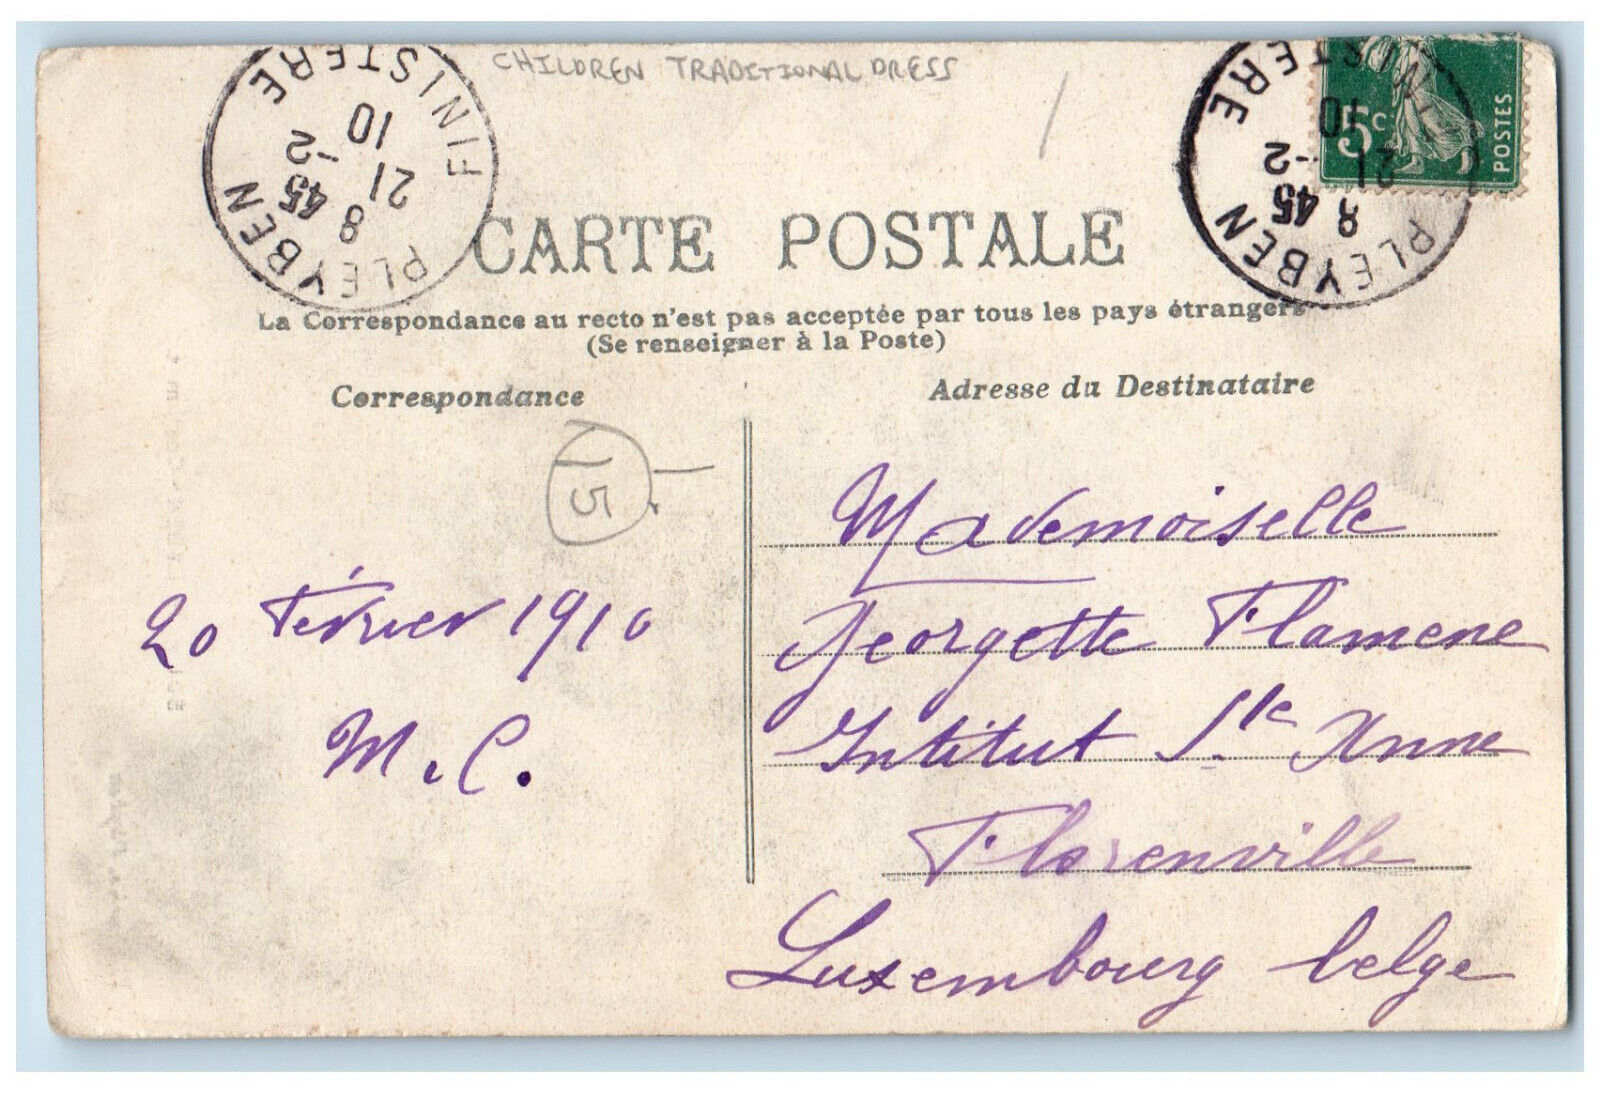 CHILDREN TRADITIONAL DRESS
PLEYBEN
8 45
21 -2
10
FINISTERE
PLEYBEN
8 45
21 -2
10
FINISTERE
5c
POSTES
CARTE POSTALE
La Correspondance au recto n'est pas acceptée par tous les pays étrangers
(Se renseigner à la Poste)
Correspondance
Adresse du Destinataire
15
20 Février 1910
M. C.
Mademoiselle
Georgette Flamene
Intitut Ste Anne
Florenville
Luxembourg belge